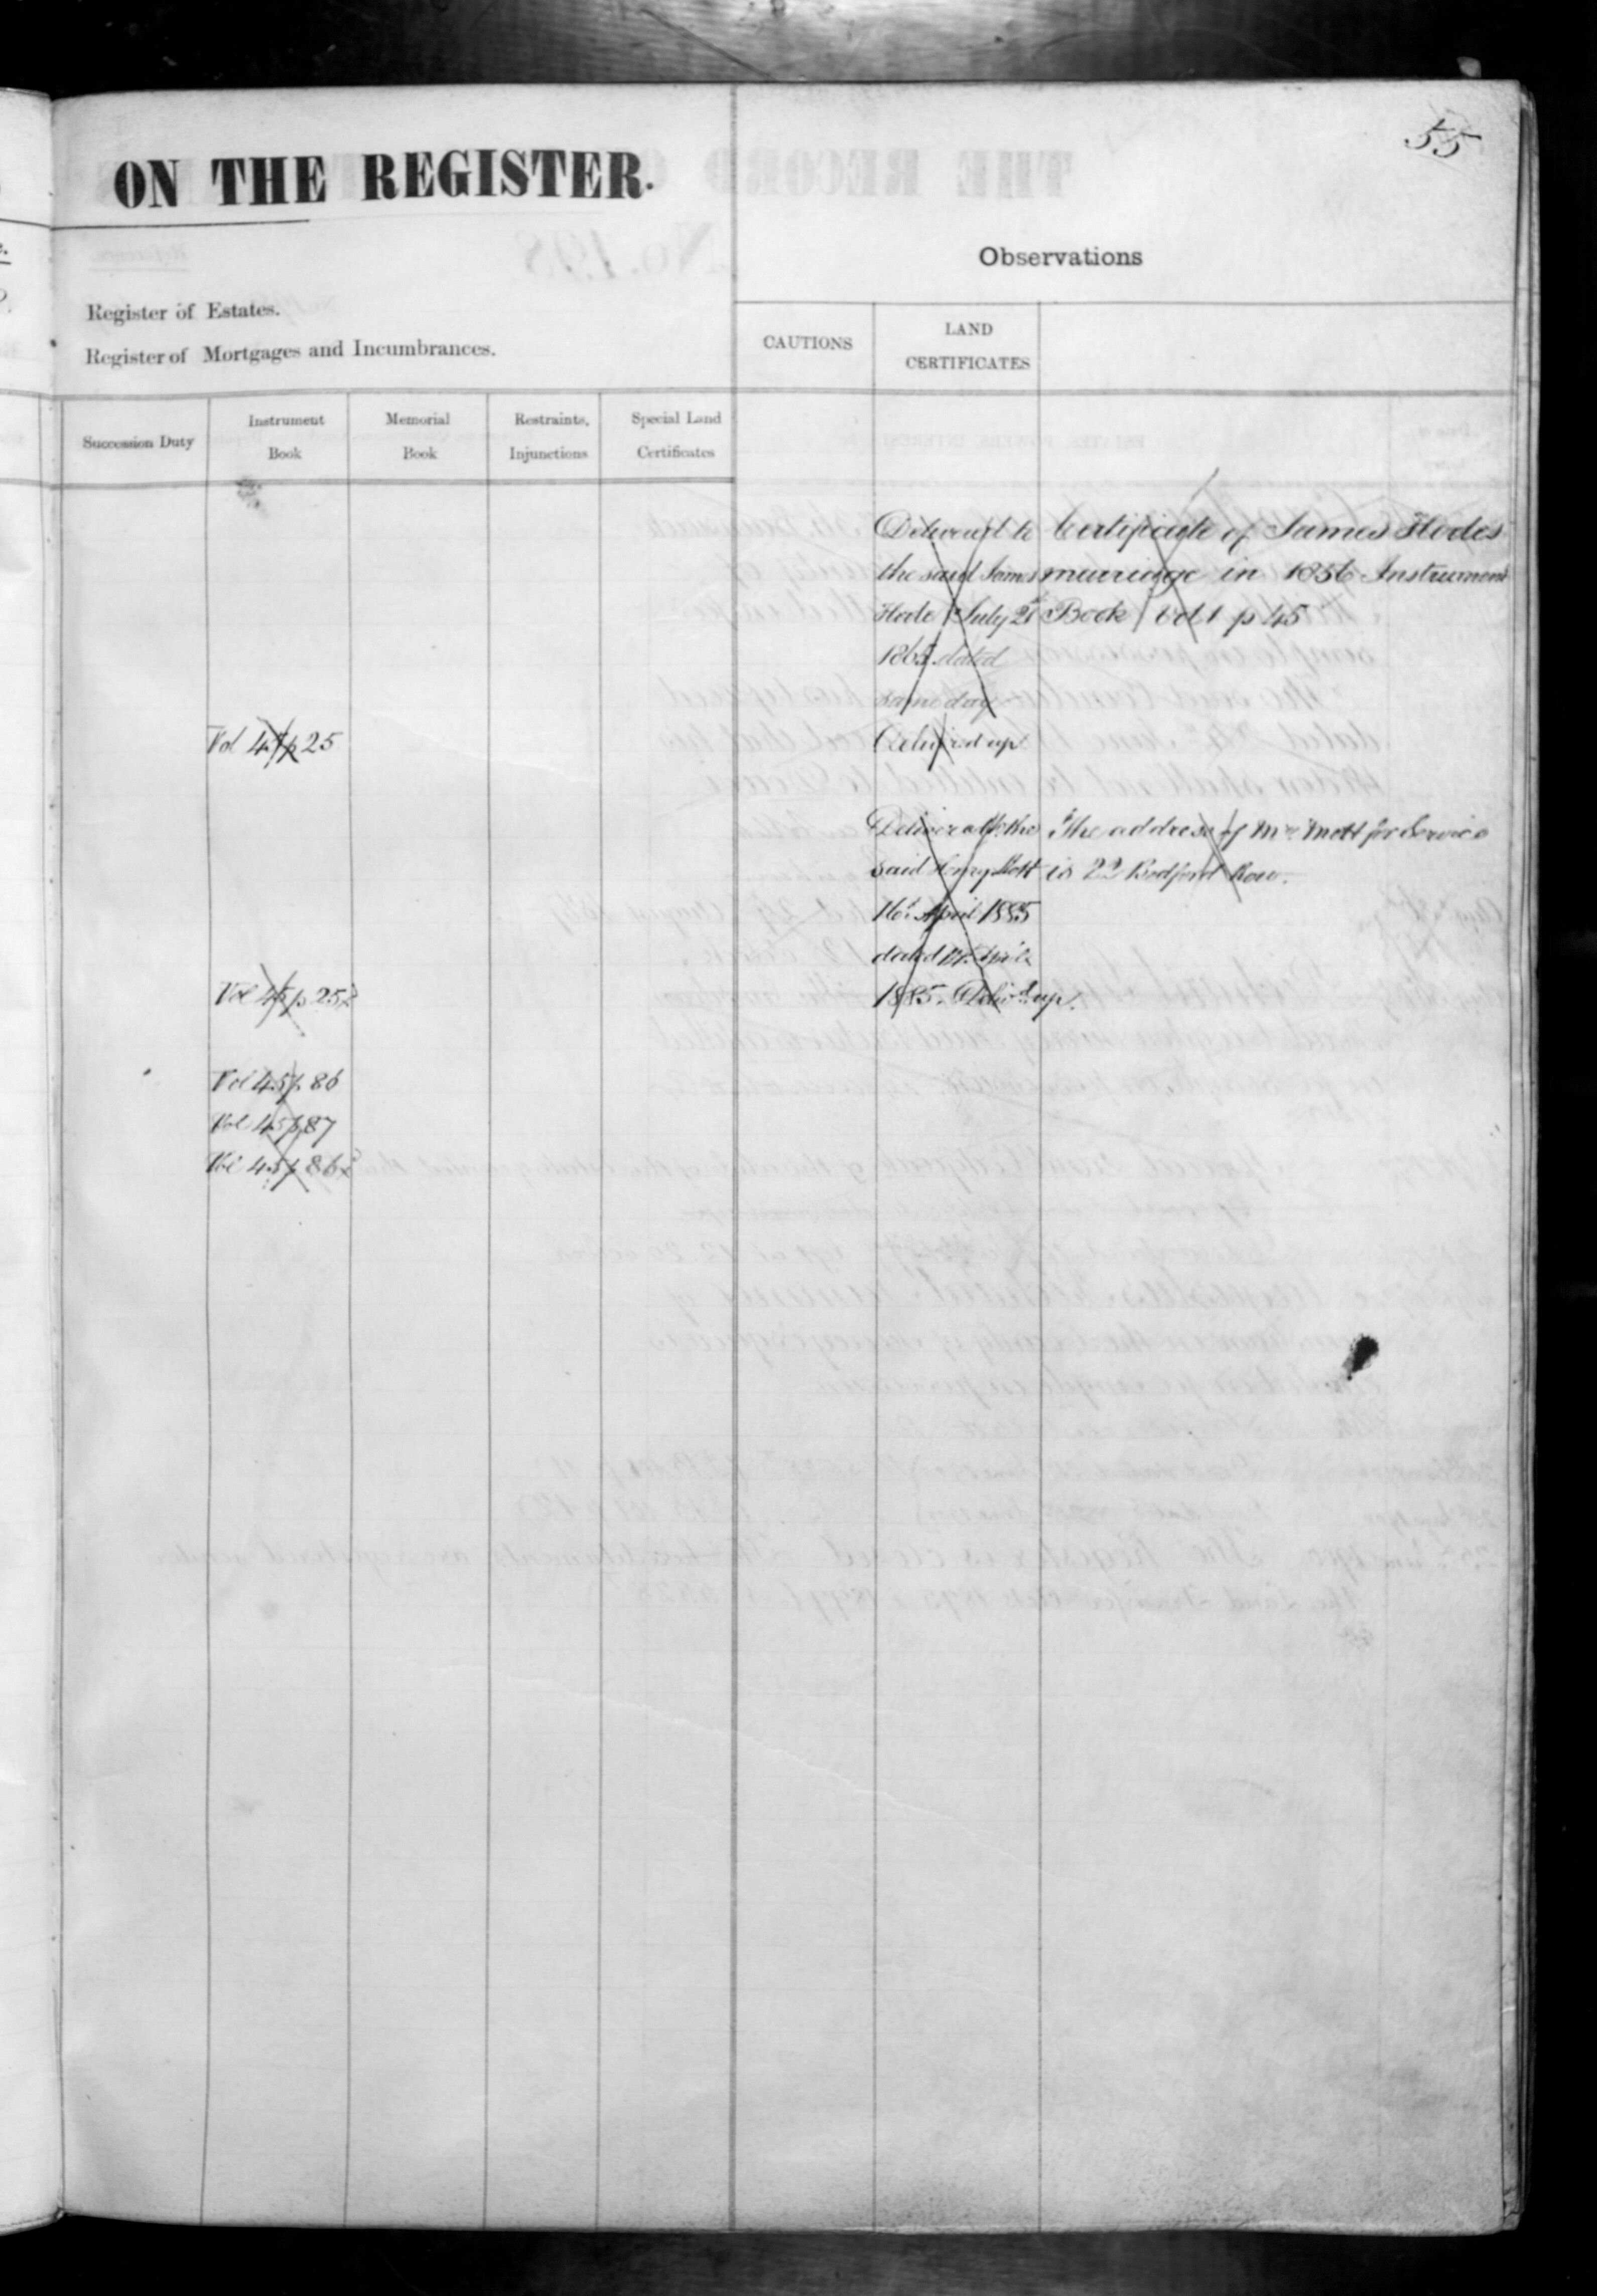 55
ON THE REGISTER.
Observations
Register of Estates.
Register of Mortgages and Incumbrances.
CAUTIONS
LAND
CERTIFICATES
Succession Duty
Instrument
Book
Memorial
Book
Restraints,
Injunctions
Special Land
Certificates
Delivered to
the said James
Hode July 21
1865 dated
same day
Certificate of James Hodes
marriage in 1856 Instrument
Book Vol 1 p 45
Vol 45 p 25
Delivered up
Delivered to the
said Henry Mott
16th April 1885
dated
1885. Deliv.d up.
The address of Mr. Mott for Service
is 22 Bedford Row.
Vol 45 p 252
Vol 45 p 86
Vol 45 p 87
Vol 45 p 862